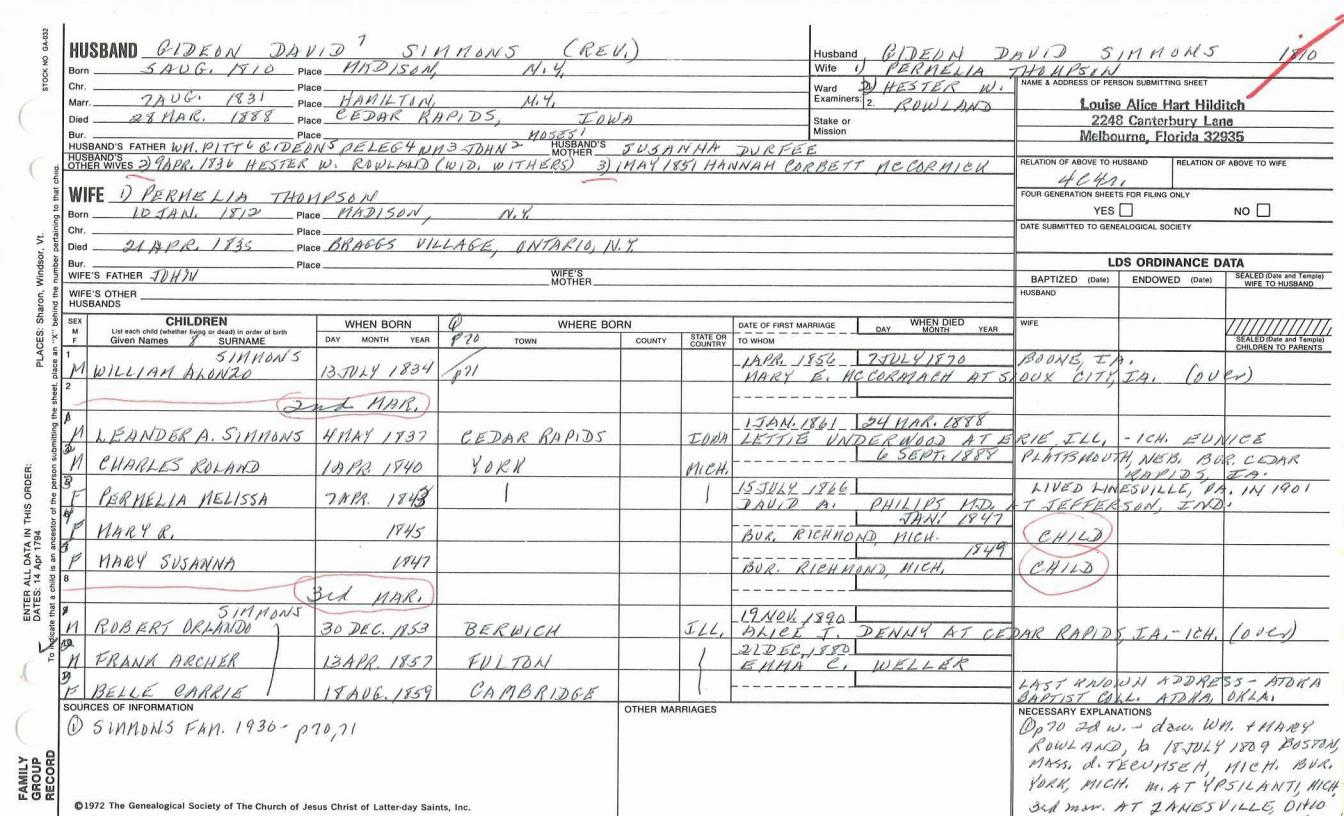 STOCK NO GA-032
HUSBAND GIDEON DAVID 7 SIMMONS (REV.)
Born 5 AUG. 1810 Place MADISON, N.Y.
Chr. Place
Marr. 7 AUG. 1831 Place HAMILTON, N.Y.
Died 28 MAR. 1888 Place CEDAR RAPIDS, IOWA
Bur. Place MOSES 1
HUSBAND'S FATHER WM. PITT 6 GIDEON 5 PELEG 4 WM 3 JOHN 2 HUSBAND'S MOTHER SUSANNA DURFEE
HUSBAND'S OTHER WIVES 2) 9 APR. 1836 HESTER W. ROWLAND (WID. WITHERS) 3) 1 MAY 1851 HANNAH CORBETT MCCORMICK
Husband GIDEON DAVID SIMMONS 1810
Wife 1) PERMELIA THOMPSON
Ward 2) HESTER W.
Examiners: 2. ROWLAND
Stake or Mission
NAME & ADDRESS OF PERSON SUBMITTING SHEET
Louise Alice Hart Hilditch
2248 Canterbury Lane
Melbourne, Florida 32935
RELATION OF ABOVE TO HUSBAND RELATION OF ABOVE TO WIFE
4C4r.
FOUR GENERATION SHEETS FOR FILING ONLY
YES NO
DATE SUBMITTED TO GENEALOGICAL SOCIETY
WIFE 1) PERMELIA THOMPSON
Born 10 JAN. 1812 Place MADISON, N.Y.
Chr. Place
Died 21 APR. 1835 Place BRAGGS VILLAGE, ONTARIO, N.Y
Bur. Place
WIFE'S FATHER JOHN WIFE'S MOTHER
WIFE'S OTHER HUSBANDS
LDS ORDINANCE DATA
BAPTIZED (Date) ENDOWED (Date) SEALED (Date and Temple) WIFE TO HUSBAND
HUSBAND
WIFE
SEALED (Date and Temple) CHILDREN TO PARENTS
SEX M F CHILDREN List each child (whether living or dead) in order of birth Given Names 8 SURNAME
WHEN BORN DAY MONTH YEAR
WHERE BORN p70 TOWN COUNTY STATE OR COUNTRY
DATE OF FIRST MARRIAGE TO WHOM
WHEN DIED DAY MONTH YEAR
1 SIMMONS 1 APR. 1856 7 JULY 1870 BOONE, IA.
M WILLIAM ALONZO 13 JULY 1834 p71 MARY E. MCCORMACH AT SIOUX CITY, IA. (over)
2 2nd MAR.
1 JAN. 1861 24 MAR. 1888
M LEANDER A. SIMMONS 4 MAY 1837 CEDAR RAPIDS IOWA LETTIE UNDERWOOD AT ERIE ILL, - 1CH. EUNICE
6 SEPT. 1888 PLATTSMOUTH, NEB. BUR. CEDAR RAPIDS, IA.
M CHARLES ROLAND 1 APR. 1840 YORK MICH.
15 JULY 1866 LIVED LINESVILLE, PA. IN 1901
F PERMELIA MELISSA 7 APR. 1843 DAVID A. PHILIPS M.D. AT JEFFERSON, IND.
JAN. 1847
F MARY R. 1845 BUR. RICHMOND, MICH. CHILD
1849
F MARY SUSANNA 1847 BUR. RICHMOND, MICH. CHILD
8 3rd MAR.
SIMMONS 19 NOV. 1890
M ROBERT ORLANDO 30 DEC. 1853 BERWICH ILL, ALICE J. DENNY AT CEDAR RAPIDS, IA. - 1CH. (over)
21 DEC. 1880
M FRANK ARCHER 13 APR. 1857 FULTON EMMA C. WELLER
F BELLE CARRIE 18 AUG. 1859 CAMBRIDGE LAST KNOWN ADDRESS - ATOKA BAPTIST COLL. ATOKA, OKLA.
SOURCES OF INFORMATION
① SIMMONS FAM. 1930 - p70,71
OTHER MARRIAGES
NECESSARY EXPLANATIONS
① p70 2d w. - dau. WM. + MARY
ROWLAND, b 18 JULY 1809 BOSTON,
MASS. d. TECUMSEH, MICH. BUR.
YORK, MICH. m. AT YPSILANTI, MICH
3rd mar. AT ZANESVILLE, OHIO
©1972 The Genealogical Society of The Church of Jesus Christ of Latter-day Saints, Inc.
FAMILY GROUP RECORD
ENTER ALL DATA IN THIS ORDER:
DATES: 14 Apr 1794
PLACES: Sharon, Windsor, Vt.
To indicate that a child is an ancestor of the person submitting the sheet, place an "X" behind the number pertaining to that child.